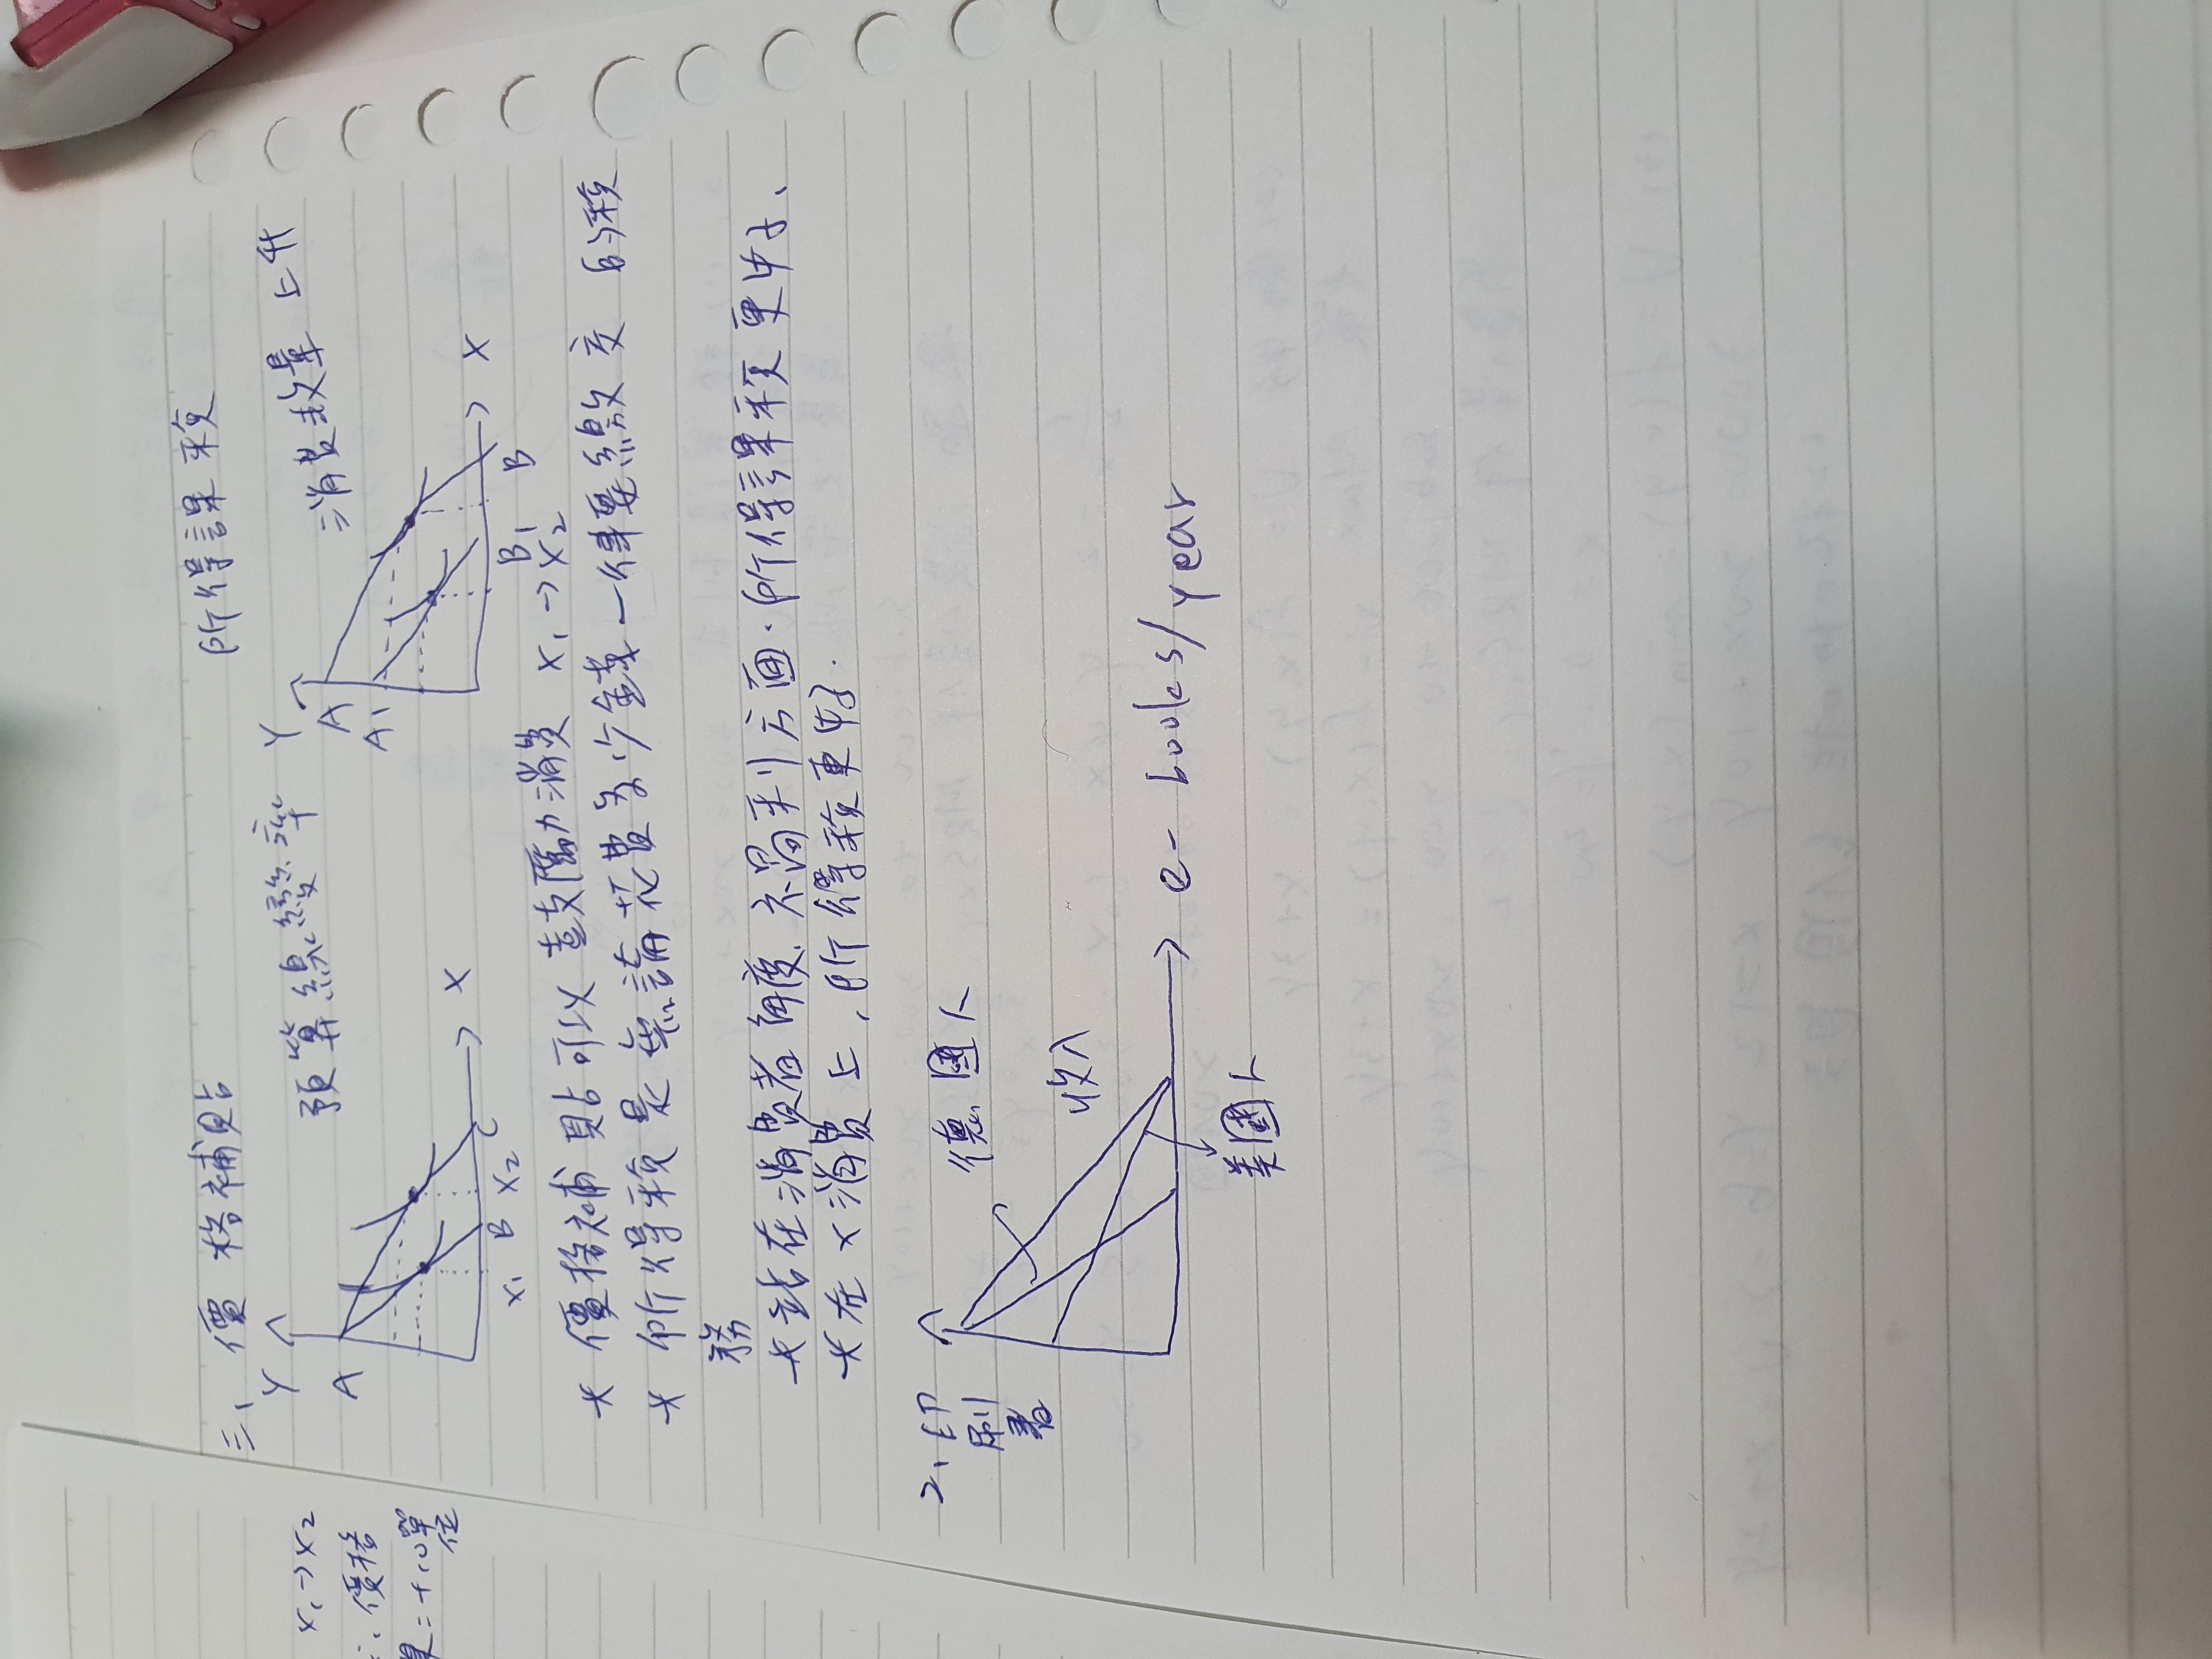 x₁→x₂
∴ 價格
= +10單
位
三、價格補貼
所得課稅
Y
預算線變率
Y
消費數量上升
A
A
A₁
X
X
x₁ B x₂ C
B₁ B
* 價格補貼可以鼓勵消費 x₁→x₂
* 所得稅是無論花費多少錢一律要繳交的稅
務
* 站在消費者角度.福利方面.所得課稅更好、
* 在x消費上,所得稅更好.
2、印
刷
書
德國人
收入
e-books/year
美國人